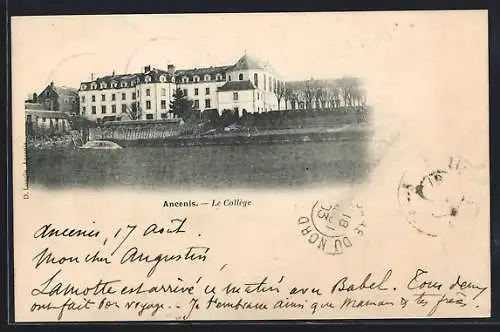 Ancenis. — Le Collège
GARE DU NORD
18
03
Ancenis, 17 Août.
Mon cher Augustin
Lamotte est arrivé ce matin avec Babel. Tous deux
ont fait bon voyage. — Je t'embrasse ainsi que maman & tes frères,